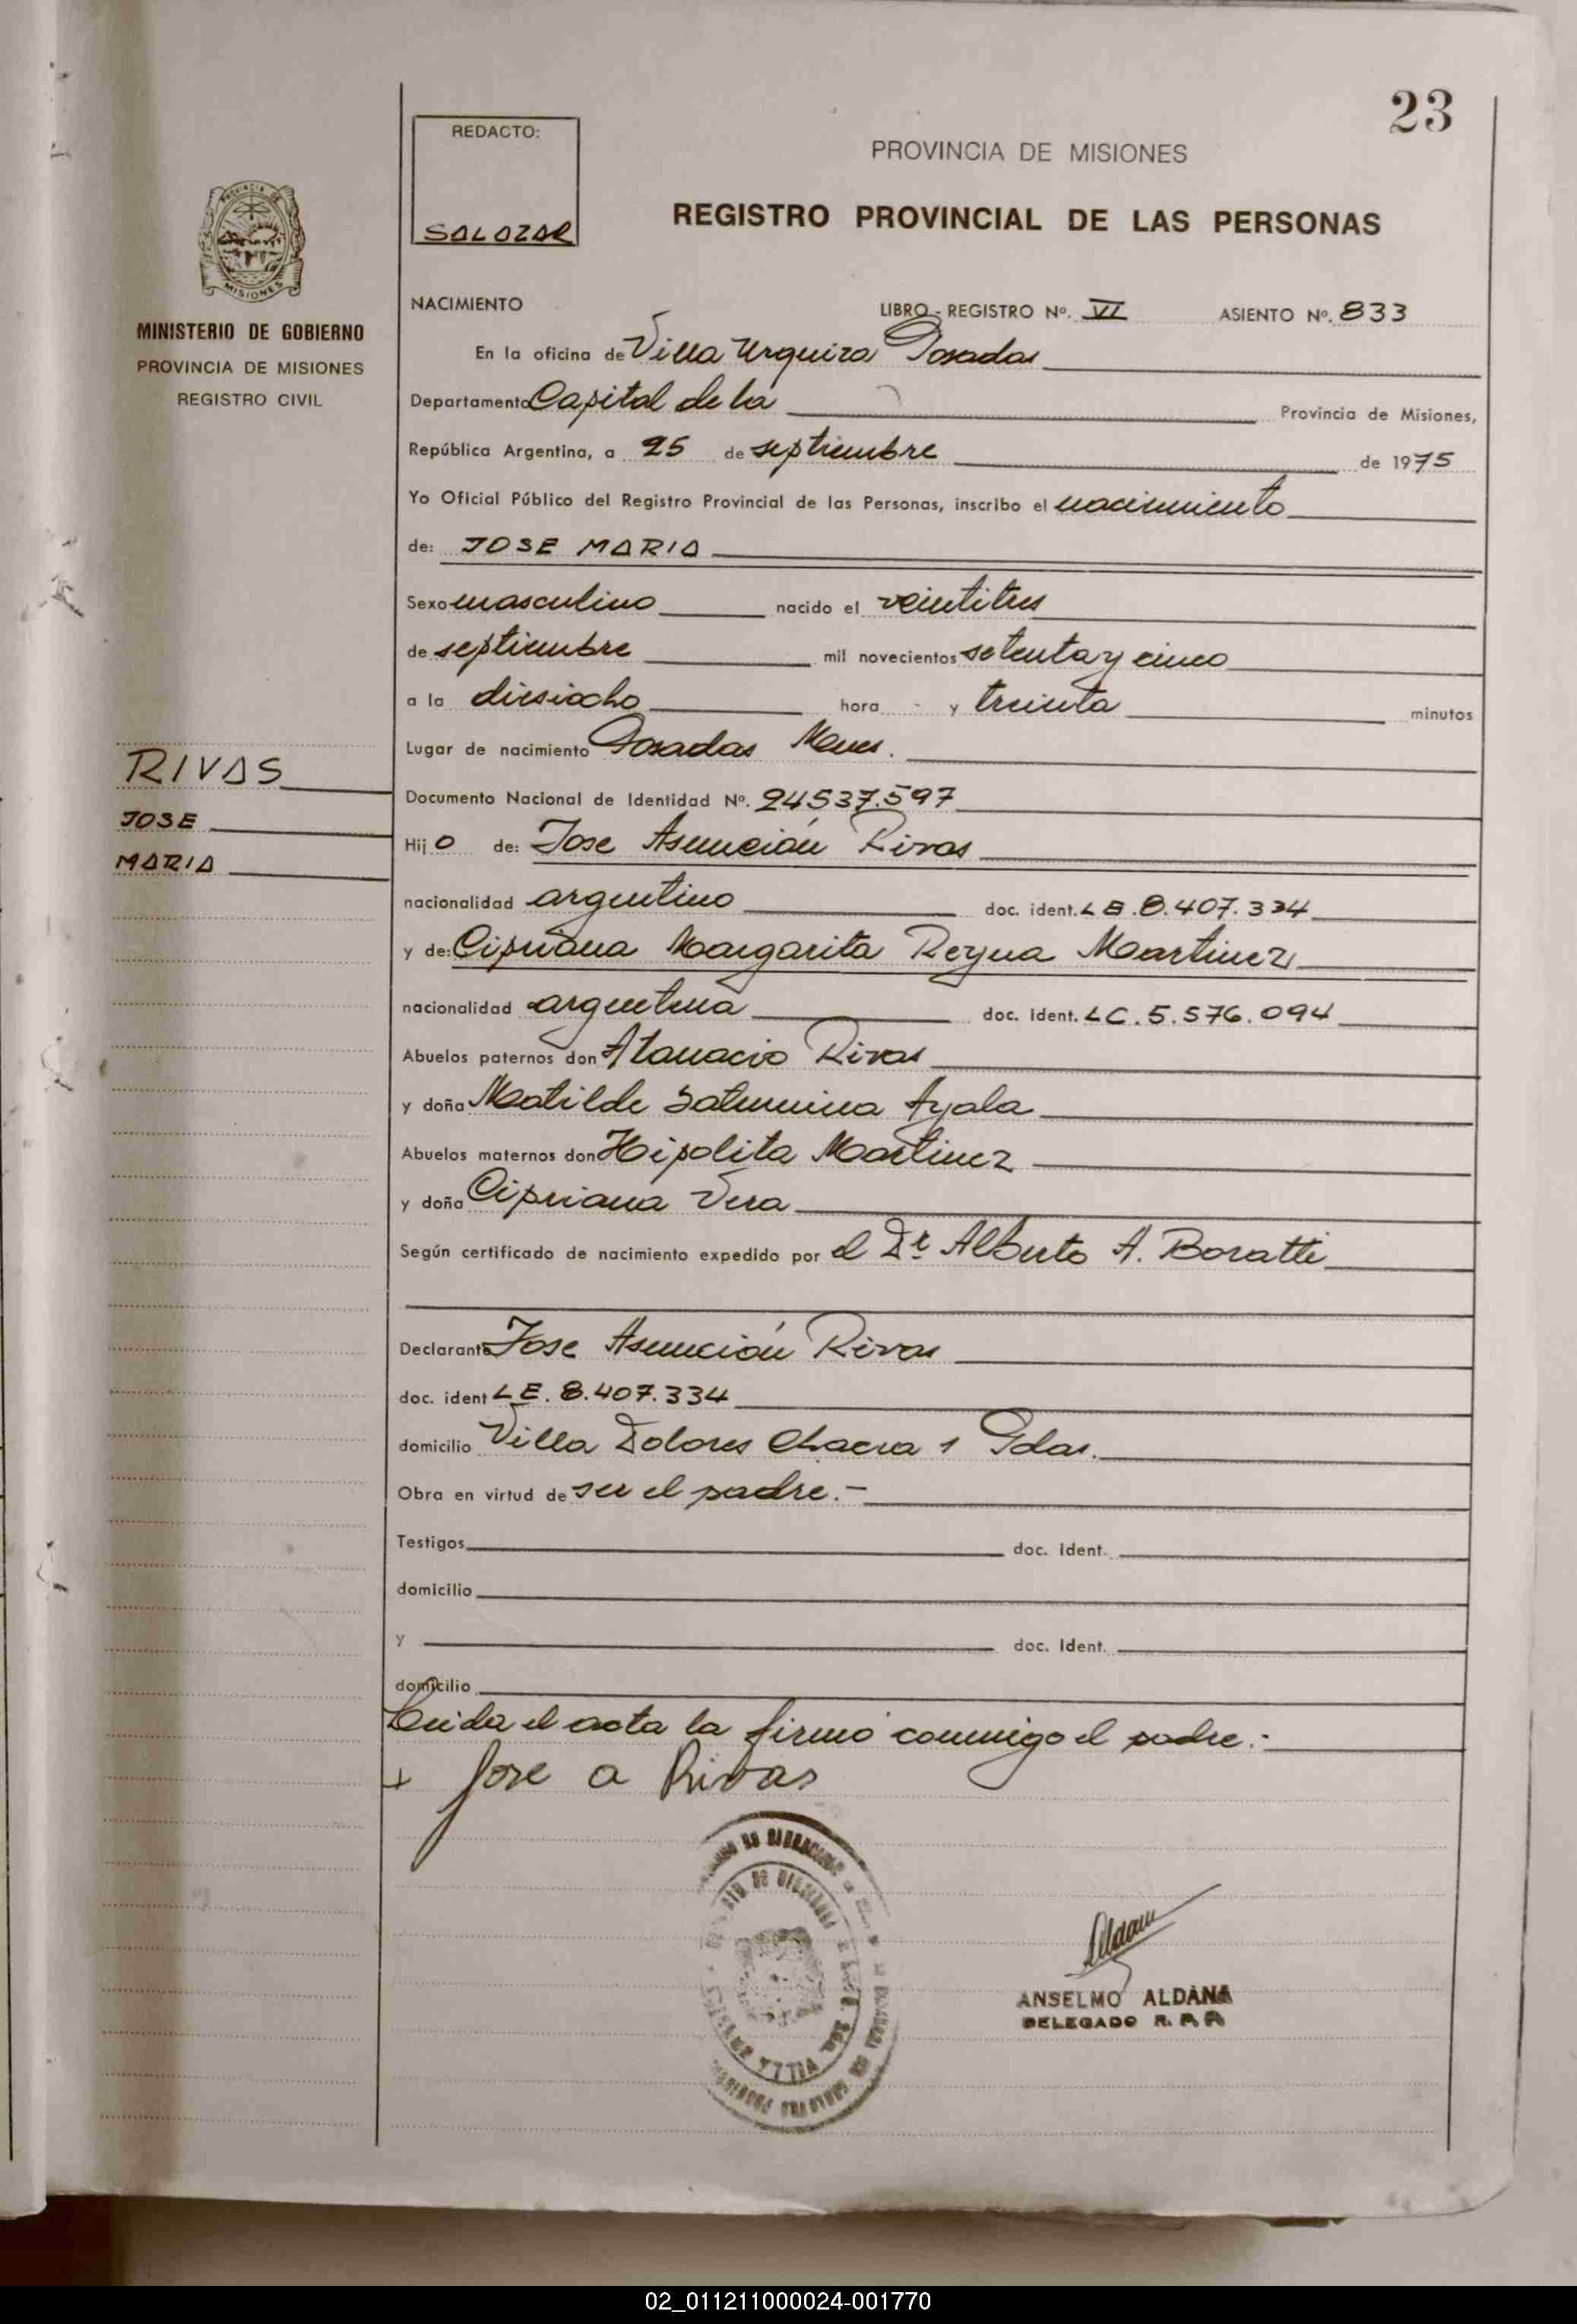 23
REDACTO:
SALAZAR
PROVINCIA DE MISIONES
REGISTRO PROVINCIAL DE LAS PERSONAS
PROVINCIA DE
MISIONES
MINISTERIO DE GOBIERNO
PROVINCIA DE MISIONES
REGISTRO CIVIL
NACIMIENTO LIBRO - REGISTRO Nº. VI ASIENTO Nº. 833
En la oficina de Villa Urquiza Posadas
Departamento Capital de la Provincia de Misiones,
República Argentina, a 25 de septiembre de 1975
Yo Oficial Público del Registro Provincial de las Personas, inscribo el nacimiento
de: JOSE MARIA
Sexo masculino nacido el veintitres
de septiembre mil novecientos setenta y cinco
a la diesiocho hora - y treinta minutos
Lugar de nacimiento Posadas Mnes.
RIVAS
JOSE
MARIA
Documento Nacional de Identidad Nº. 24537.597
Hijo de: Jose Asunción Rivas
nacionalidad argentino doc. ident. LE.8.407.334
y de: Cipriana Margarita Reyna Martinez
nacionalidad argentina doc. ident. LC.5.576.094
Abuelos paternos don Atanacio Rivas
y doña Matilde Saturnina Ayala
Abuelos maternos don Hipolita Martinez
y doña Cipriana Vera
Según certificado de nacimiento expedido por el Dr Alberto A. Boratti
Declarante Jose Asunción Rivas
doc. ident LE. 8.407.334
domicilio Villa Dolores Chacra 1 Pdas.
Obra en virtud de ser el padre.-
Testigos doc. ident.
domicilio
y doc. ident.
domicilio
Leida el acta la firmó conmigo el padre.-
+ Jose a Rivas
VILLA
Aldana
ANSELMO ALDANA
DELEGADO R. P. P.
02_011211000024-001770